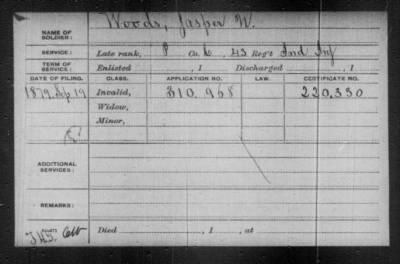 NAME OF SOLDIER: Woods, Jasper W.
SERVICE: Late rank, P Co. 43 Reg't Ind Inf
TERM OF SERVICE: Enlisted , 1 Discharged , 1
DATE OF FILING. CLASS. APPLICATION NO. LAW. CERTIFICATE NO.
1879, Sep 19 Invalid, 310,968 220,330
Widow,
Minor,
ADDITIONAL SERVICES:
REMARKS:
Died , 1 , at